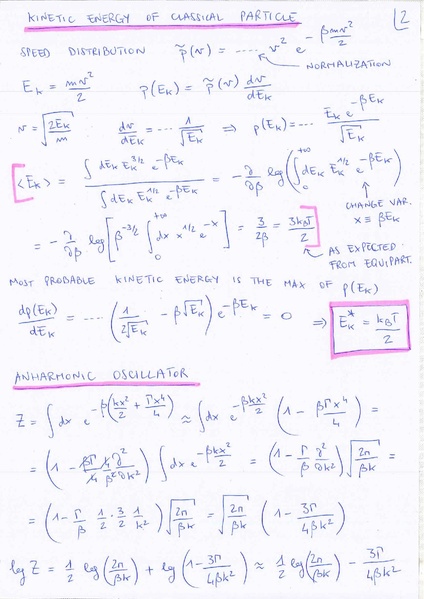 KINETIC ENERGY OF CLASSICAL PARTICLE
2
SPEED DISTRIBUTION p̃(v) = ..... v² e^{-βmv²/2}
NORMALIZATION
E_K = mv²/2 p(E_K) = p̃(v) dv/dE_K
v = √(2E_K/m) dv/dE_K = ... 1/√E_K ⇒ p(E_K) = ... E_K e^{-βE_K}/√E_K
⟨E_K⟩ = ∫dE_K E_K^{3/2} e^{-βE_K} / ∫dE_K E_K^{1/2} e^{-βE_K} = -∂/∂β log(∫_0^{+∞} dE_K E_K^{1/2} e^{-βE_K})
CHANGE VAR.
x ≡ βE_K
= -∂/∂β log[β^{-3/2} ∫_0^{+∞} dx x^{1/2} e^{-x}] = 3/2β = 3k_BT/2
AS EXPECTED
FROM EQUIPART.
MOST PROBABLE KINETIC ENERGY IS THE MAX OF p(E_K)
dp(E_K)/dE_K = .... (1/2√E_K - β√E_K) e^{-βE_K} = 0 ⇒ E_K^* = k_BT/2
ANHARMONIC OSCILLATOR
Z = ∫dx e^{-β(kx²/2 + Γx⁴/4)} ≈ ∫dx e^{-βkx²/2} (1 - βΓx⁴/4) =
= (1 - βΓ/4 4/β² ∂²/∂k²) ∫dx e^{-βkx²/2} = (1 - Γ/β ∂²/∂k²) √(2π/βk) =
= (1 - Γ/β 1/2 · 3/2 1/k²) √(2π/βk) = √(2π/βk) (1 - 3Γ/4βk²)
log Z = 1/2 log(2π/βk) + log(1 - 3Γ/4βk²) ≈ 1/2 log(2π/βk) - 3Γ/4βk²